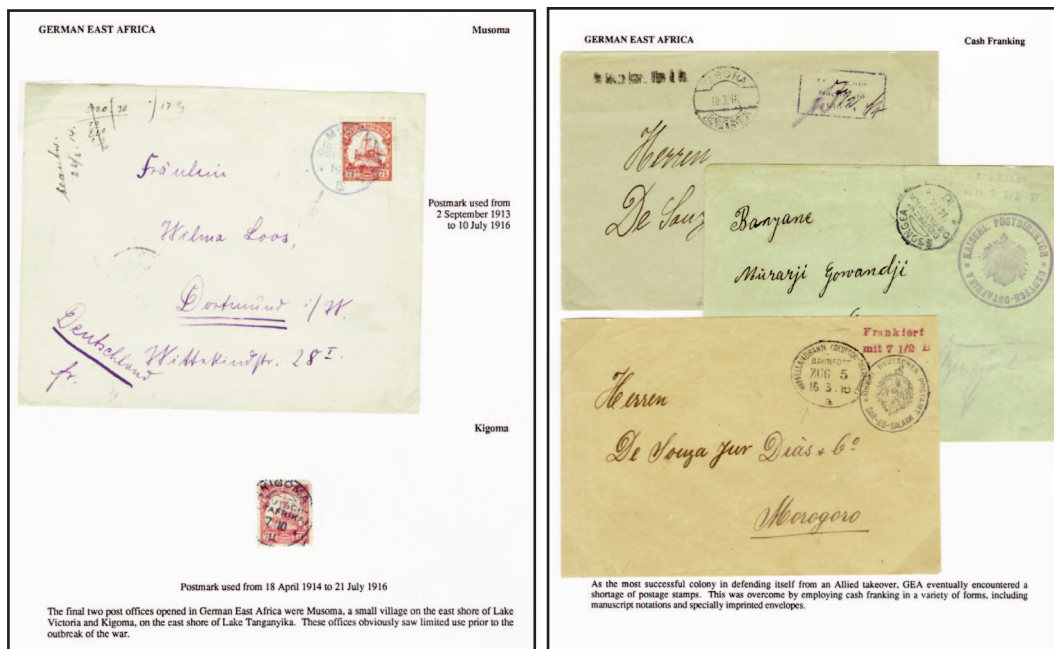 GERMAN EAST AFRICA
Musoma
beantw.
Fräulein
Wilma Loos,
Dortmund i/W.
Deutschland
Wittekindstr. 28 I.
fr.
Postmark used from
2 September 1913
to 10 July 1916
Kigoma
KIGOMA
Postmark used from 18 April 1914 to 21 July 1916
The final two post offices opened in German East Africa were Musoma, a small village on the east shore of Lake
Victoria and Kigoma, on the east shore of Lake Tanganyika. These offices obviously saw limited use prior to the
outbreak of the war.
GERMAN EAST AFRICA
Cash Franking
TABORA
Herren
De Souz
Banyane
Mūrarji Gowandji
KAISERL. POSTDIREKTION
DEUTSCH-OSTAFRIKA
Frankiert
mit 7 1/2 H
BAHNPOST
ZUG 5
16.3.16
a
KAISERL. DEUTSCHES POSTAMT
DAR-ES-SALAAM
Herren
De Souza Jur Diàs & Co
Morogoro
As the most successful colony in defending itself from an Allied takeover, GEA eventually encountered a
shortage of postage stamps. This was overcome by employing cash franking in a variety of forms, including
manuscript notations and specially imprinted envelopes.